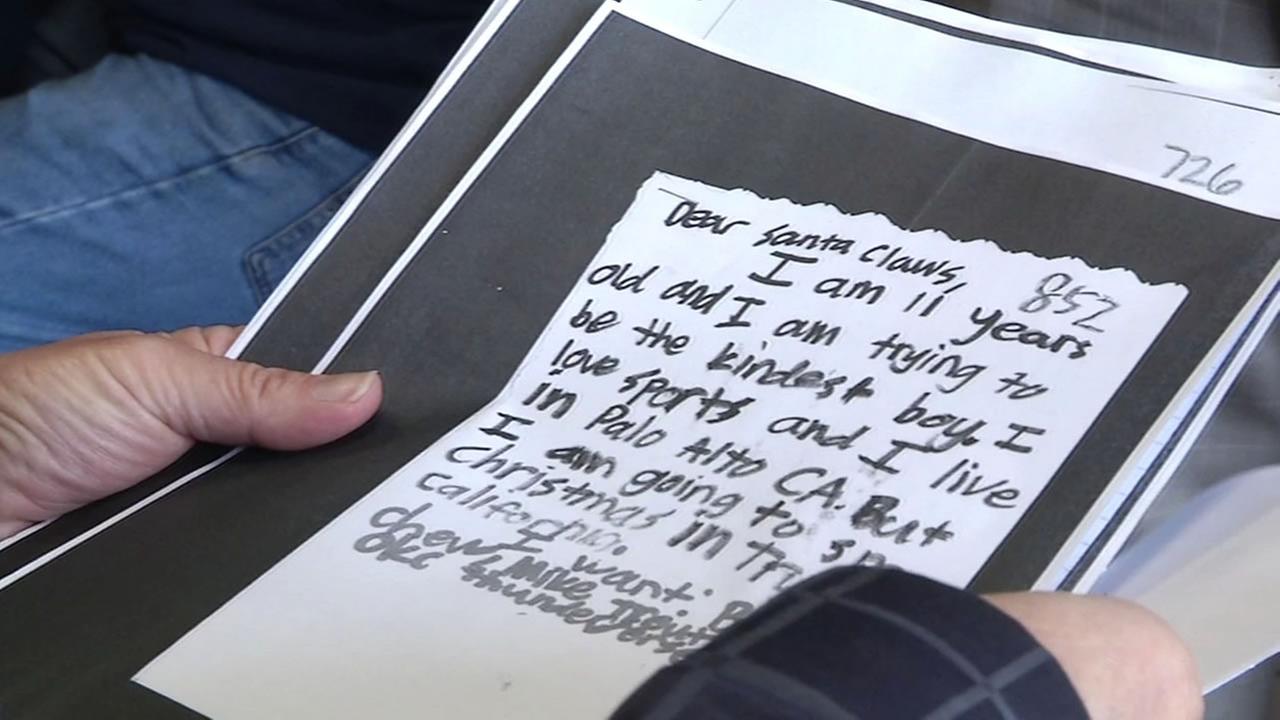 726
Dear Santa Claws,
852
I am 11 years
old and I am trying to
be the kindest boy. I
love sports and I live
in Palo Alto CA. But
I am going to
Christmas in
California.
I want:
chew, Mike Trout
OKC thunder